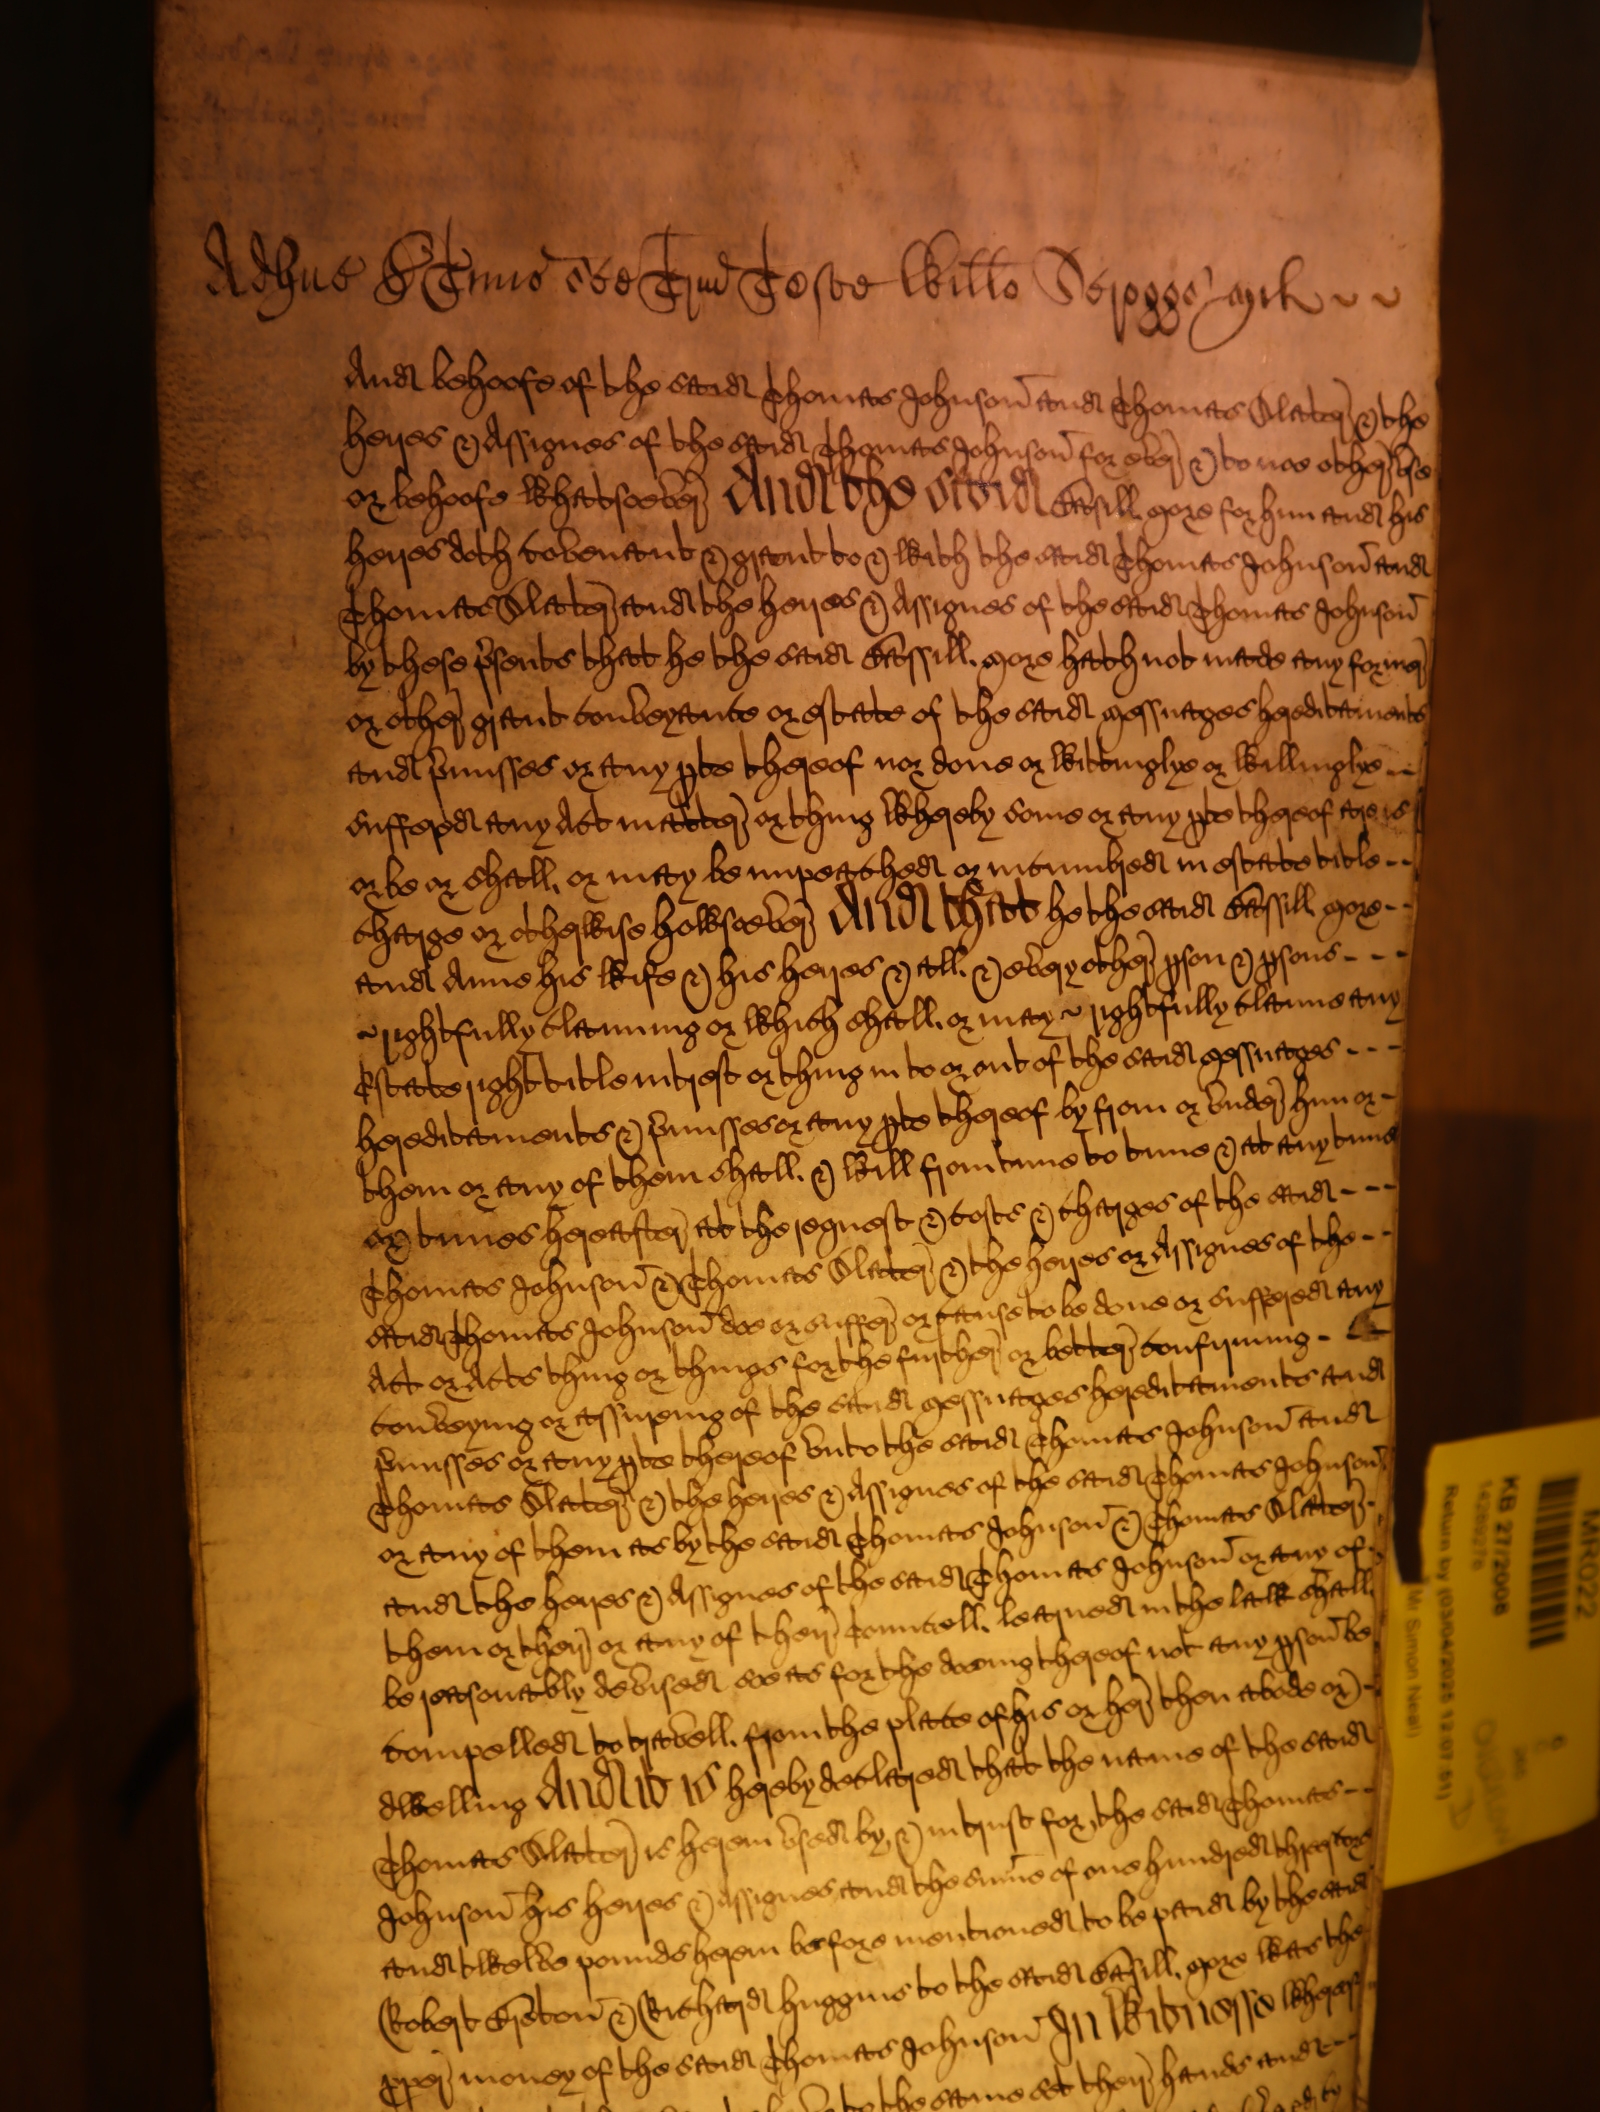 Adhuc de Termino see Trin Teste Willo Scroggs Mil
And behoofe of the said Thomas Johnson and Thomas Slater & the
heires & Assignes of the said Thomas Johnson for ever & to noe other use
or behoofe whatsoever And the said Cassill More for him and his
heires doth covenant & grant to & with the said Thomas Johnson and
Thomas Slater and the heires & Assignes of the said Thomas Johnson
by these psents that he the said Cassill More hath not made any former
or other grant conveyance or estate of the said Messuages hereditaments
and pmisses or any pte thereof nor done or wittinglye or willinglye
suffered any Act matter or thing whereby some or any pte thereof are is
or be or shall or may be impeached or incumbred in estate title
charge or otherwise howsoever And that he the said Cassill More
and Anne his wife & his heires & all & every other pson & psons
rightfully claiming or which shall or may rightfully claime any
Estate right title intrest or thing in to or out of the said Messuages
hereditaments & pmisses or any pte thereof by from or under him or
them or any of them shall & will from time to time & at any time
or times hereafter at the request & costs & charges of the said
Thomas Johnson & Thomas Slater & the heires or Assignes of the
said Thomas Johnson doe or suffer or cause to be done or suffered any
Act or Acts thing or things for the further or better confirming
conveying or assureing of the said Messuages hereditaments and
pmisses or any pte thereof unto the said Thomas Johnson and
Thomas Slater & the heires & Assignes of the said Thomas Johnson
or any of them as by the said Thomas Johnson & Thomas Slater
and the heires & Assignes of the said Thomas Johnson or any of
them or their or any of their Councell learned in the law shall
be reasonably devised soe as for the doeing thereof not any pson be
compelled to travell from the place of his or her then abode or
dwelling And it is hereby declared that the name of the said
Thomas Slater is herein used by & in trust for the said Thomas
Johnson his heires & Assignes and the sume of one hundred threescore
and twelve pounds herein before mentioned to be paid by the said
Robert & Richard Huggins to the said Cassill More was the
pper money of the said Thomas Johnson In Witnesse whereof
to the same set their hands and
MR022
KB 27/2006
14289276
Return by (03/04/2025 12:07:51)
Mr Simon Neal